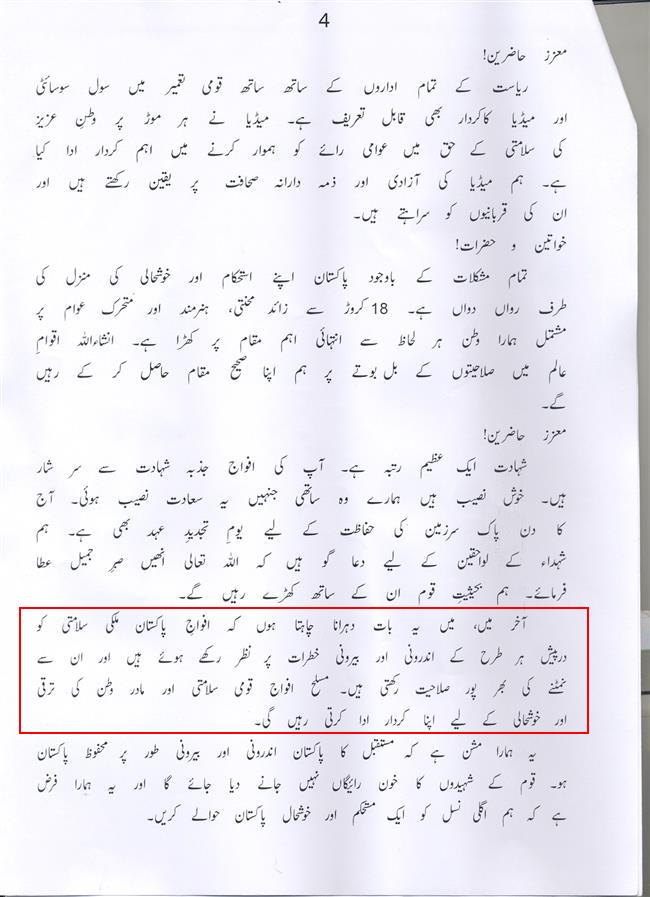 4
معزز حاضرین!
ریاست کے تمام اداروں کے ساتھ ساتھ قومی تعمیر میں سول سوسائٹی
اور میڈیا کاکردار بھی قابل تعریف ہے۔ میڈیا نے ہر موڑ پر وطنِ عزیز
کی سلامتی کے حق میں عوامی رائے کو ہموار کرنے میں اہم کردار ادا کیا
ہے۔ ہم میڈیا کی آزادی اور ذمہ دارانہ صحافت پر یقین رکھتے ہیں اور
ان کی قربانیوں کو سراہتے ہیں۔
خواتین و حضرات!
تمام مشکلات کے باوجود پاکستان اپنے استحکام اور خوشحالی کی منزل کی
طرف رواں دواں ہے۔ 18 کروڑ سے زائد محنتی، ہنرمند اور متحرک عوام پر
مشتمل ہمارا وطن ہر لحاظ سے انتہائی اہم مقام پر کھڑا ہے۔ انشاءاللہ اقوامِ
عالم میں صلاحیتوں کے بل بوتے پر ہم اپنا صحیح مقام حاصل کر کے رہیں
گے۔
معزز حاضرین!
شہادت ایک عظیم رتبہ ہے۔ آپ کی افواج جذبہ شہادت سے سر شار
ہیں۔ خوش نصیب ہیں ہمارے وہ ساتھی جنہیں یہ سعادت نصیب ہوئی۔ آج
کا دن پاک سرزمین کی حفاظت کے لیے یومِ تجدیدِ عہد بھی ہے۔ ہم
شہداء کے لواحقین کے لیے دعا گو ہیں کہ اللہ تعالی انھیں صبرِ جمیل عطا
فرمائے۔ ہم بحیثیتِ قوم ان کے ساتھ کھڑے رہیں گے۔
آخر میں، میں یہ بات دہرانا چاہتا ہوں کہ افواجِ پاکستان ملکی سلامتی کو
درپیش ہر طرح کے اندرونی اور بیرونی خطرات پر نظر رکھے ہوئے ہیں اور ان سے
نمٹنے کی بھر پور صلاحیت رکھتی ہیں۔ مسلح افواج قومی سلامتی اور مادر وطن کی ترقی
اور خوشحالی کے لیے اپنا کردار ادا کرتی رہیں گی۔
یہ ہمارا مشن ہے کہ مستقبل کا پاکستان اندرونی اور بیرونی طور پر محفوظ پاکستان
ہو۔ قوم کے شہیدوں کا خون رائیگاں نہیں جانے دیا جائے گا اور یہ ہمارا فرض
ہے کہ ہم اگلی نسل کو ایک مستحکم اور خوشحال پاکستان حوالے کریں۔